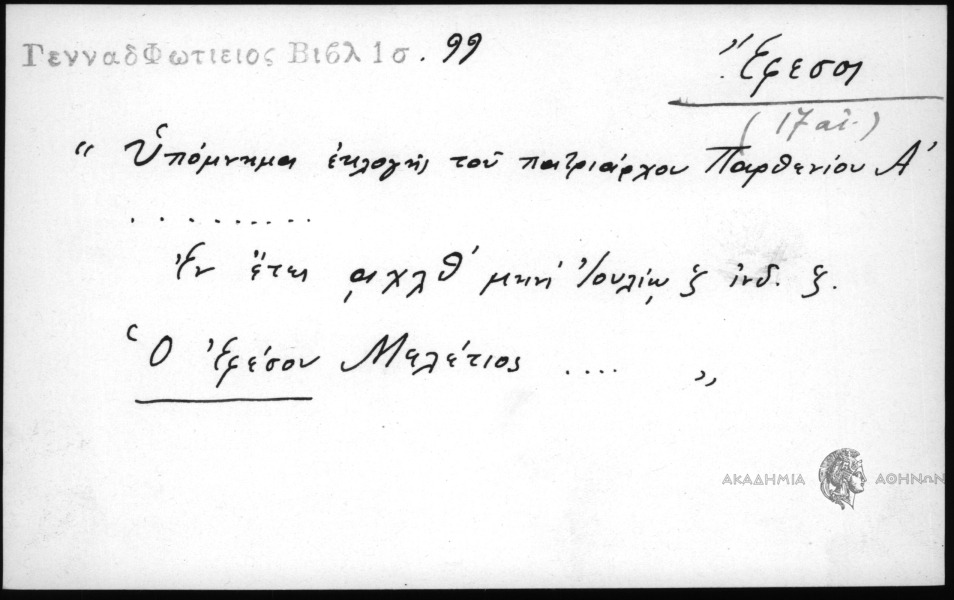 ΓενναδΦωτιειος Βιβλ 1σ. 99
Ἔφεσος
(17 αἰ.)
“ Ὑπόμνημα ἐκλογῆς τοῦ πατριάρχου Παρθενίου Α'
. . . . . . . . .
Ἐν ἔτει αχλθ' μηνὶ Ἰουλίῳ ζ ἰνδ. ζ.
Ὁ Ἐφέσου Μελέτιος .... ”
ΑΚΑΔΗΜΙΑ ΑΘΗΝΩΝ